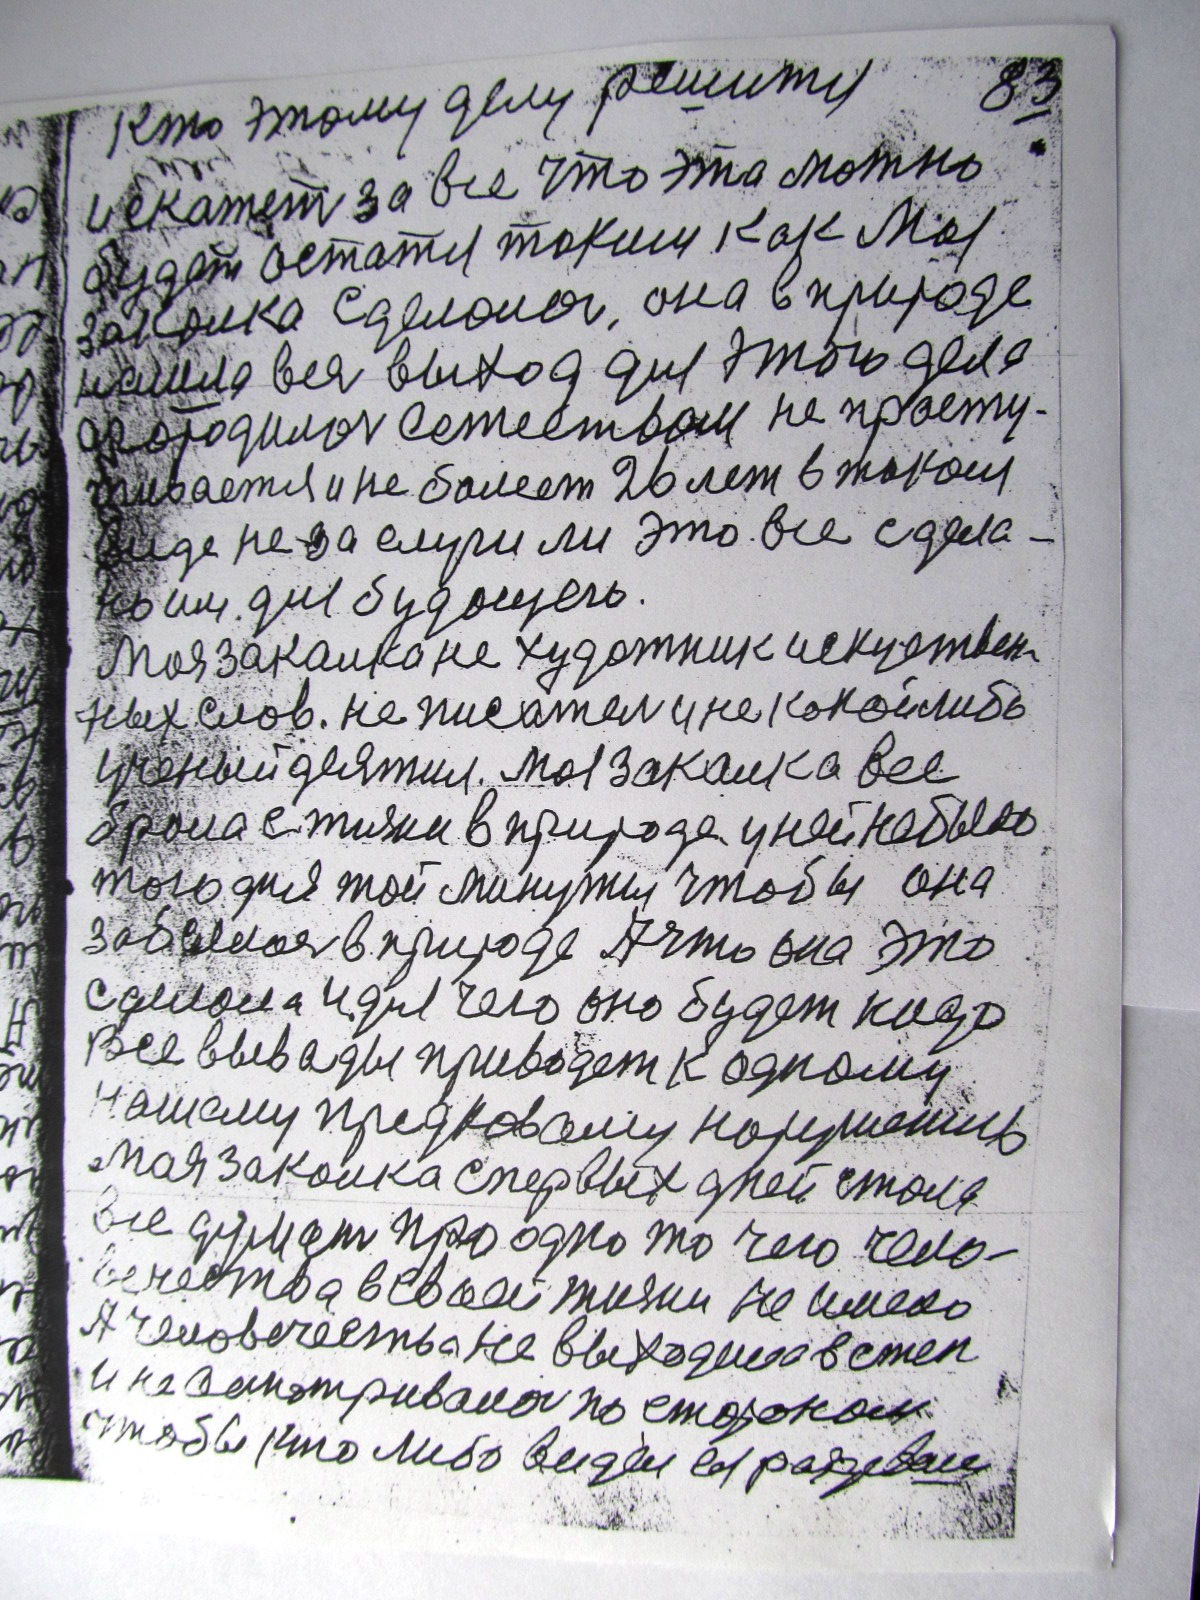 83
Кто этому делу решится
и скажет за все что этаможно
будет остатся таким как Моя
закалка сделалося, она в природе
нашла вся выход для этого дела
сородилося сетеством не просту-
живается и не болеет 26 лет в таком
виде не заслужили это все сдела-
ным для будощего.
Моя закалка не художник искуствен-
ных слов. не писател и не какой либо
ученый деятил. моя закалка все
брала с тизни в природе у ней не было
того дня той минуты чтобы она
забылася в природе А что она это
сделола и для чего оно будет надо
Все вывады приводет к одному
нашему предковому норушению
Моя закалка с первых дней стола
все думат про одно то чего чело-
вечества в своей тизни не имело
А человечества не выходила в степ
и не сматривалося по сторонам
чтобы кто либо видел ея раздевши